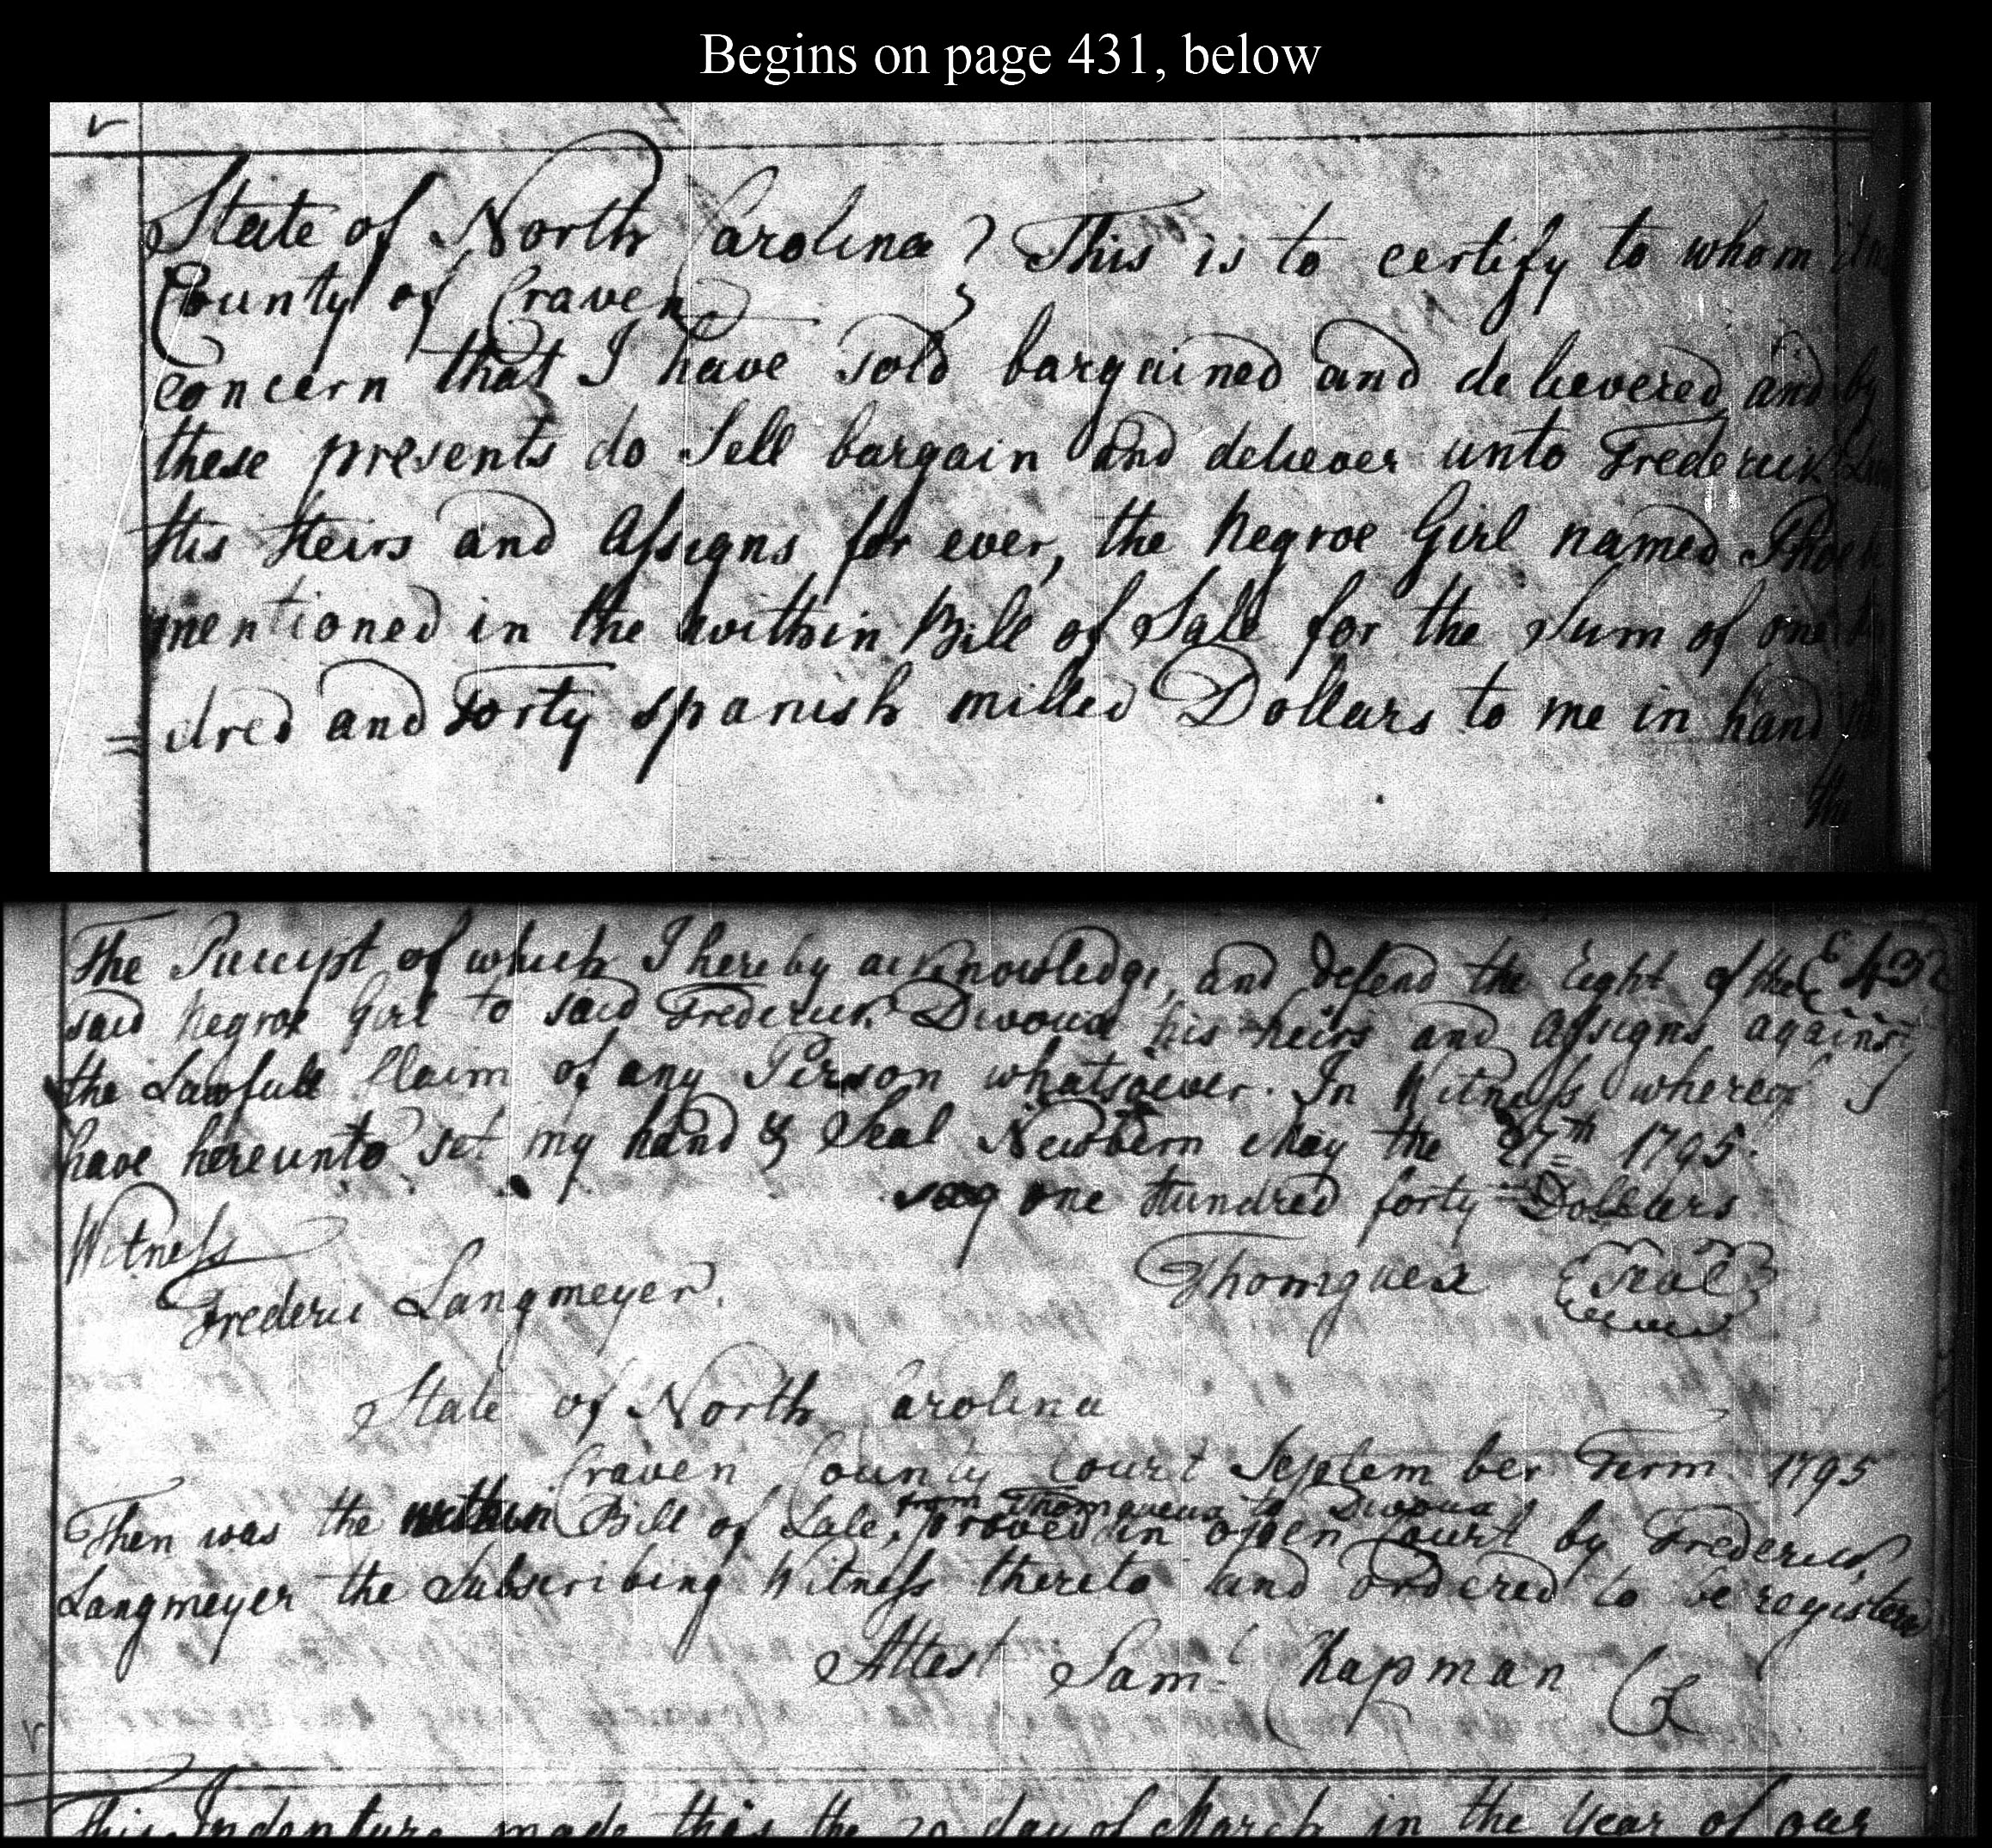 Begins on page 431, below
State of North Carolina } This is to certify to whom
County of Craven
concern that I have sold bargained and delievered and by
these presents do Sell bargain and deliever unto Frederick
His Heirs and Assigns for ever, the Negroe Girl named
mentioned in the within Bill of Sale for the Sum of one
dred and Forty spanish milled Dollars to me in hand
the
The Receipt of which I hereby acknowledge, and defend the Right of the 432
said Negroe Girl to said Frederick Divoux his heirs and Assigns against
the Lawfull Claim of any Person whatsoever. In Witness whereof I
have hereunto set my hand & Seal Newbern May the 27th 1795.
say one Hundred forty Dollars
Witness
Frederic Langmeyer. Thomguex Seal
State of North Carolina
Craven County Court September Term 1795
from Thomgueux to Divoux
Then was the within Bill of Sale, proved in open Court by Frederick
Langmeyer the Subscribing Witness thereto and ordered to be registered
Attest Saml Chapman Ck
This Indenture made this the 20 day of March in the Year of our